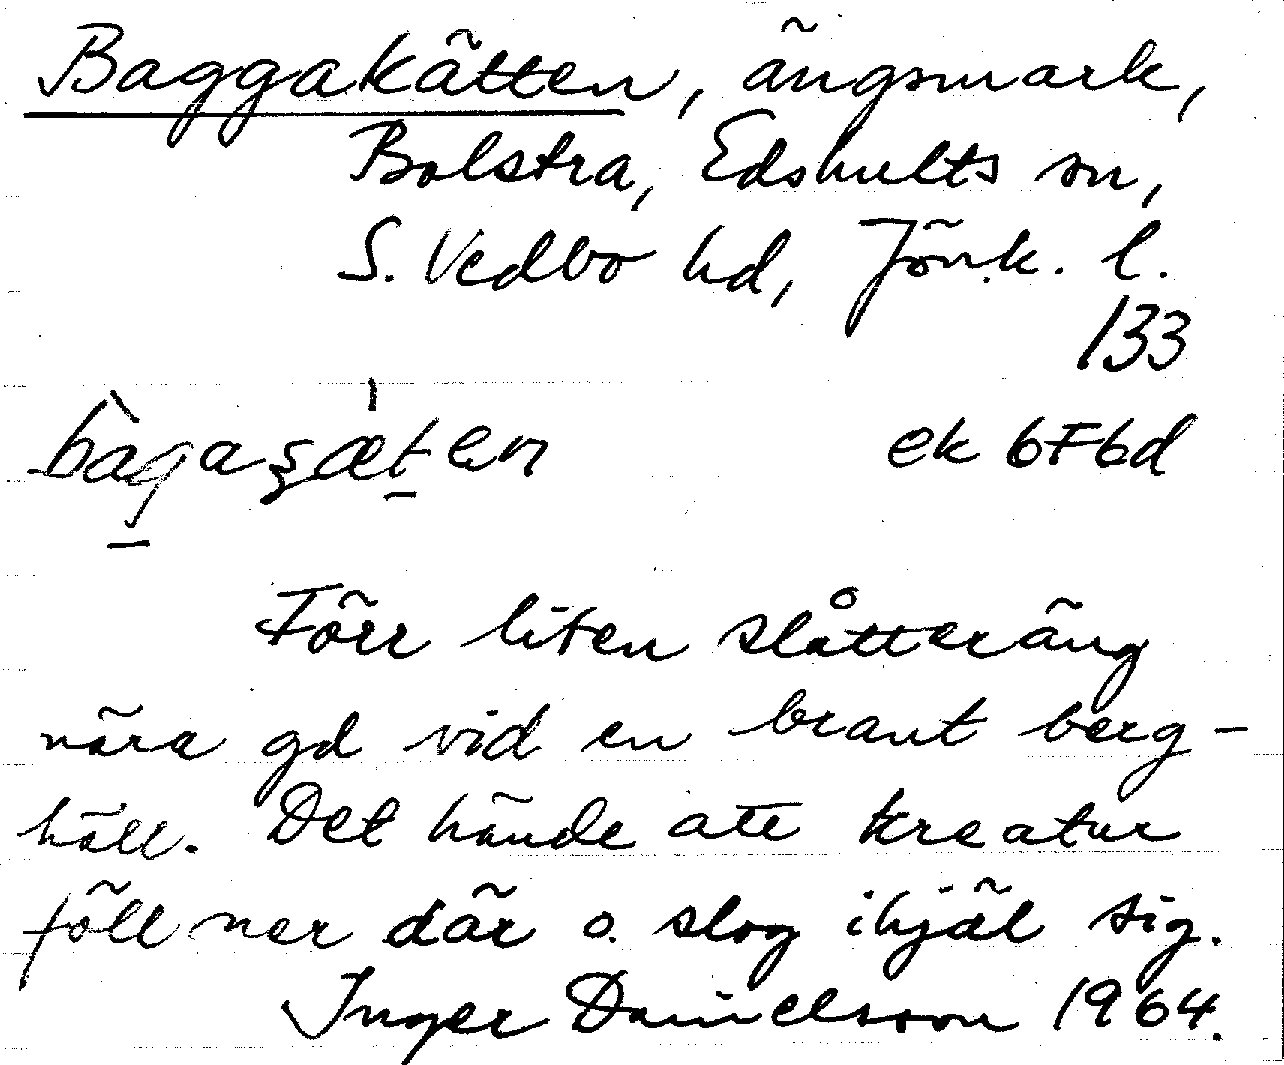 Baggakätten, ängsmark,
Bolstra, Edshults sn,
S. Vedbo hd, Jönk. l.
133
bàgaʂæ̍ten ek 6F6d
Förr liten slåtteräng
nära gd vid en brant berg-
häll. Det hände att kreatur
föll ner där o. slog ihjäl sig.
Inger Danielsson 1964.